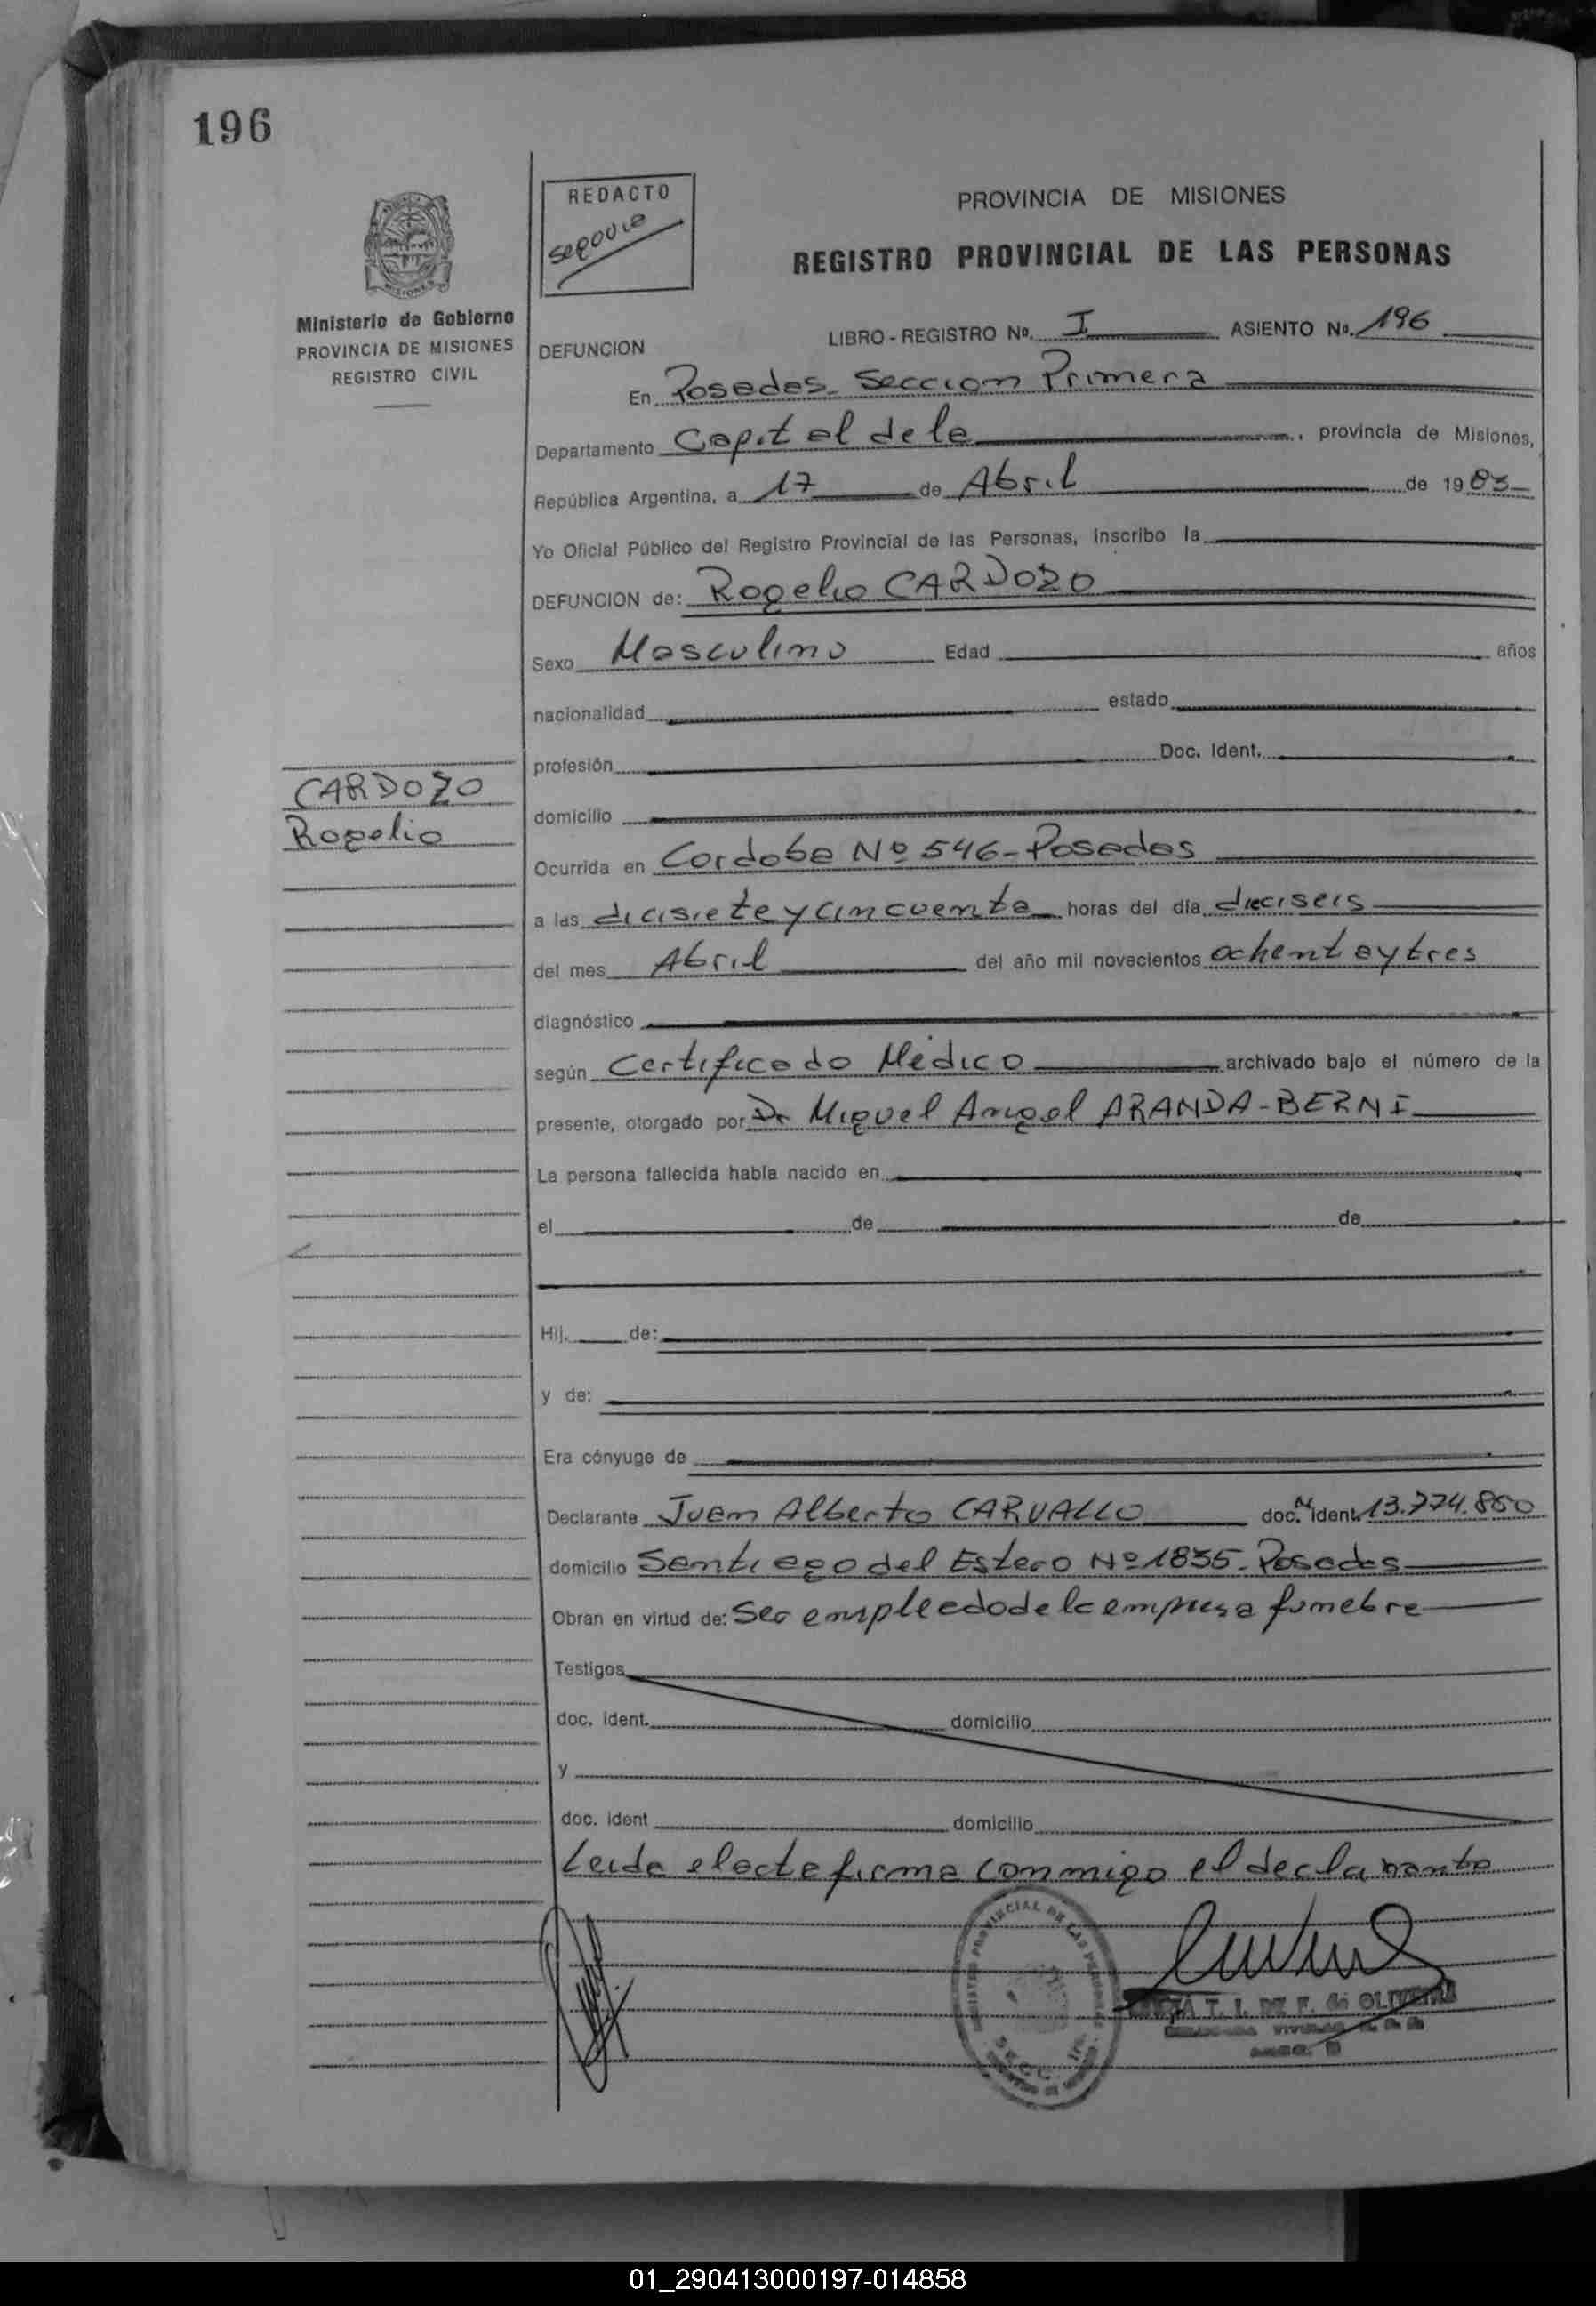 196
REDACTO
Segovia
PROVINCIA DE MISIONES
REGISTRO PROVINCIAL DE LAS PERSONAS
Ministerio de Gobierno
PROVINCIA DE MISIONES
REGISTRO CIVIL
LIBRO - REGISTRO Nº. I ASIENTO Nº. 196
DEFUNCION
En Posadas. Seccion Primera
Departamento Capital de la , provincia de Misiones,
República Argentina, a 17 de Abril de 1983
Yo Oficial Público del Registro Provincial de las Personas, inscribo la
DEFUNCION de: Rogelio CARDOZO
Sexo Masculino Edad años
nacionalidad estado
profesión Doc. Ident.
CARDOZO
Rogelio
domicilio
Ocurrida en Cordoba Nº 546 - Posadas
a las diecisiete y cincuenta horas del día dieciseis
del mes Abril del año mil novecientos ochenta y tres
diagnóstico
según Certificado Médico archivado bajo el número de la
presente, otorgado por Dr Miguel Angel ARANDA - BERNI
La persona fallecida había nacido en
el de de
Hij. de:
y de:
Era cónyuge de
Declarante Juan Alberto CARVALLO doc. N ident. 13.774.850
domicilio Santiago del Estero Nº 1835. Posadas
Obran en virtud de: Ser empleado de la empresa funebre
Testigos
doc. ident. domicilio
y
doc. ident domicilio
Leida el acta firma conmigo el declarante
REGISTRO PROVINCIAL DE LAS PERSONAS
T. I. DE F. de OLIVEIRA
01_290413000197-014858